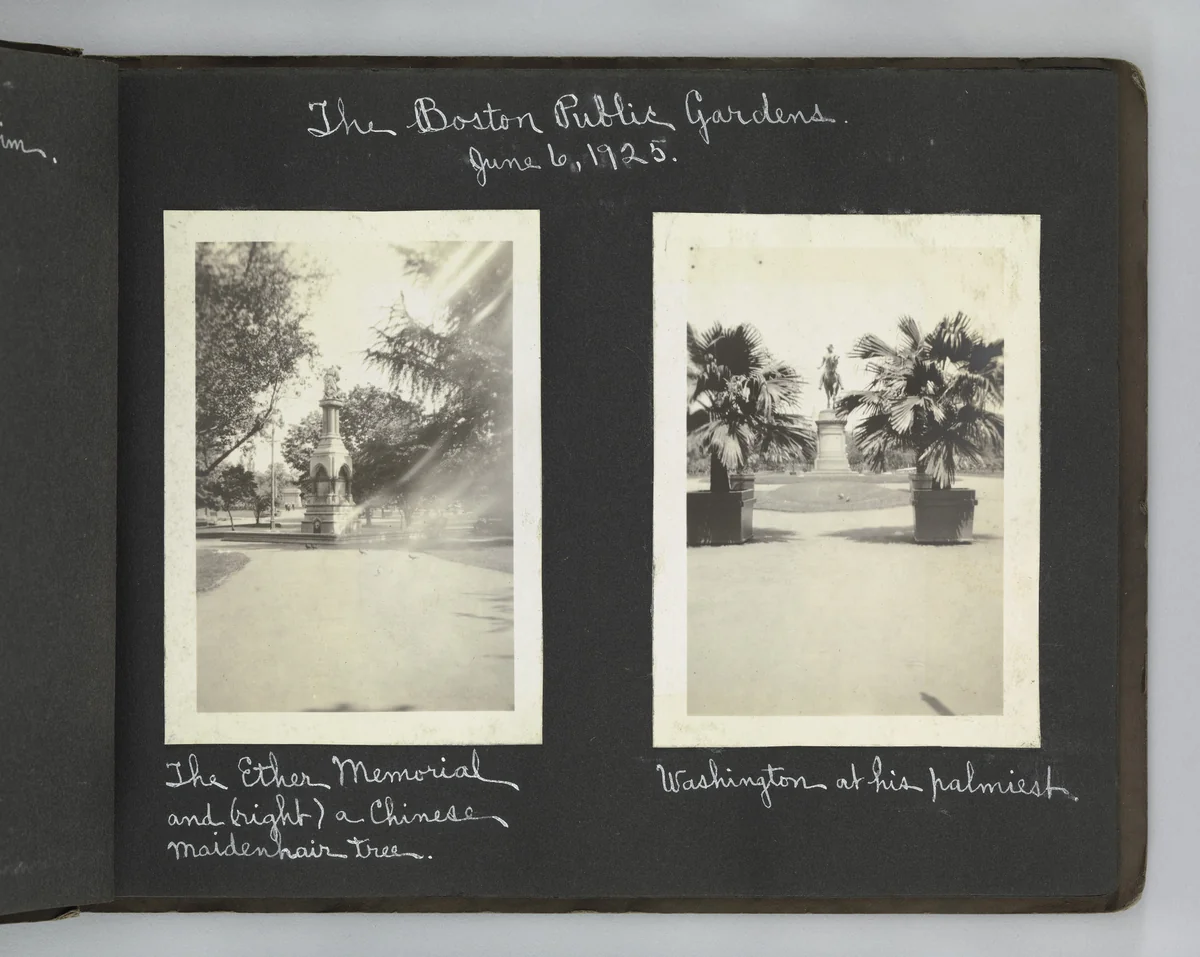 im.
The Boston Public Gardens.
June 6, 1925.
The Ether Memorial
and (right) a Chinese
maidenhair tree.
Washington at his palmiest.